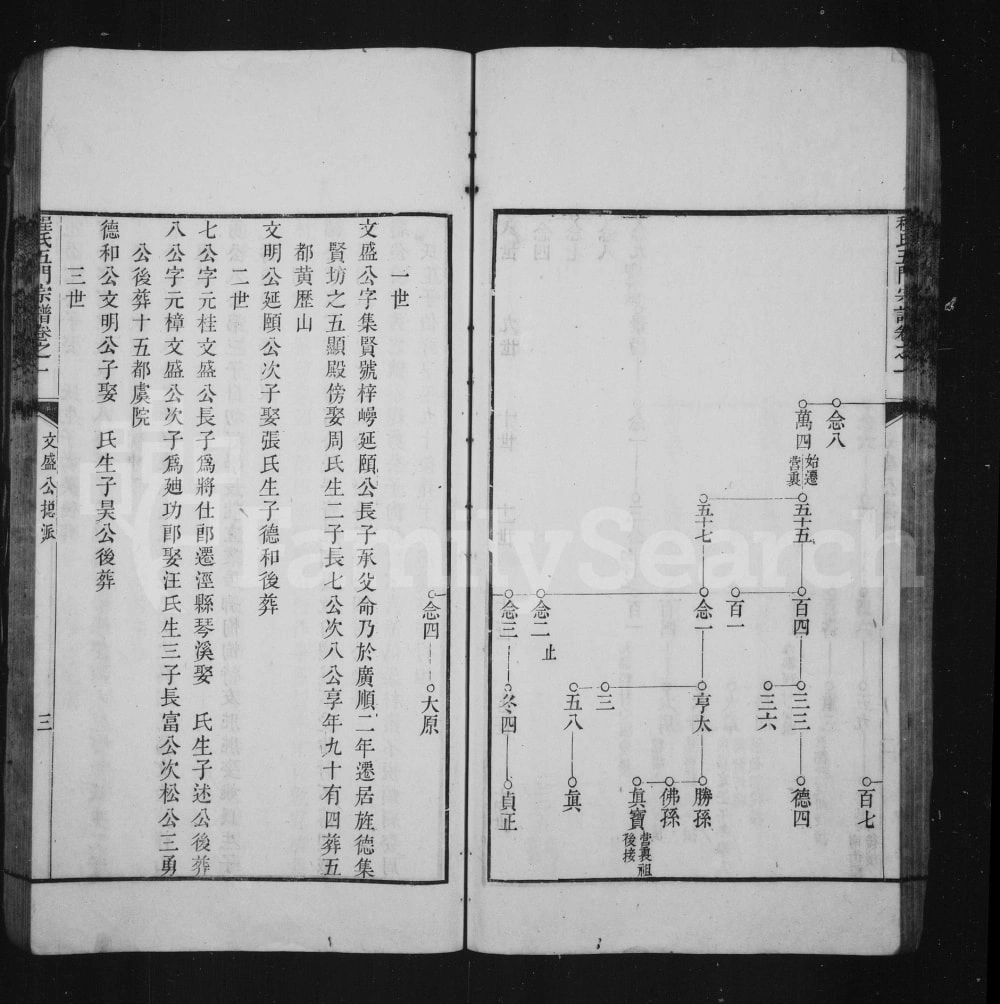 程氏五門宗譜卷之一
念八
萬四
始遷
營裏
五十五
五十七
百四
百一
念一
念二
止
念三
三三
三六
亨太
三
五八
冬四
百七
德四
勝孫
佛孫
眞寶
營裏祖
後接
眞
貞正
念四
大原
一世
文盛公字集賢號梓嶹延頤公長子承父命乃於廣順二年遷居旌德集
賢坊之五顯殿傍娶周氏生二子長七公次八公享年九十有四葬五
都黄歷山
文明公延頤公次子娶張氏生子德和後葬
二世
七公字元桂文盛公長子爲將仕郎遷涇縣琴溪娶 氏生子述公後葬
八公字元樟文盛公次子爲廸功郎娶汪氏生三子長富公次松公三勇
公後葬十五都虞院
德和公文明公子娶 氏生子昊公後葬
三世
程氏五門宗譜卷之一
文盛公揔派
三
FamilySearch